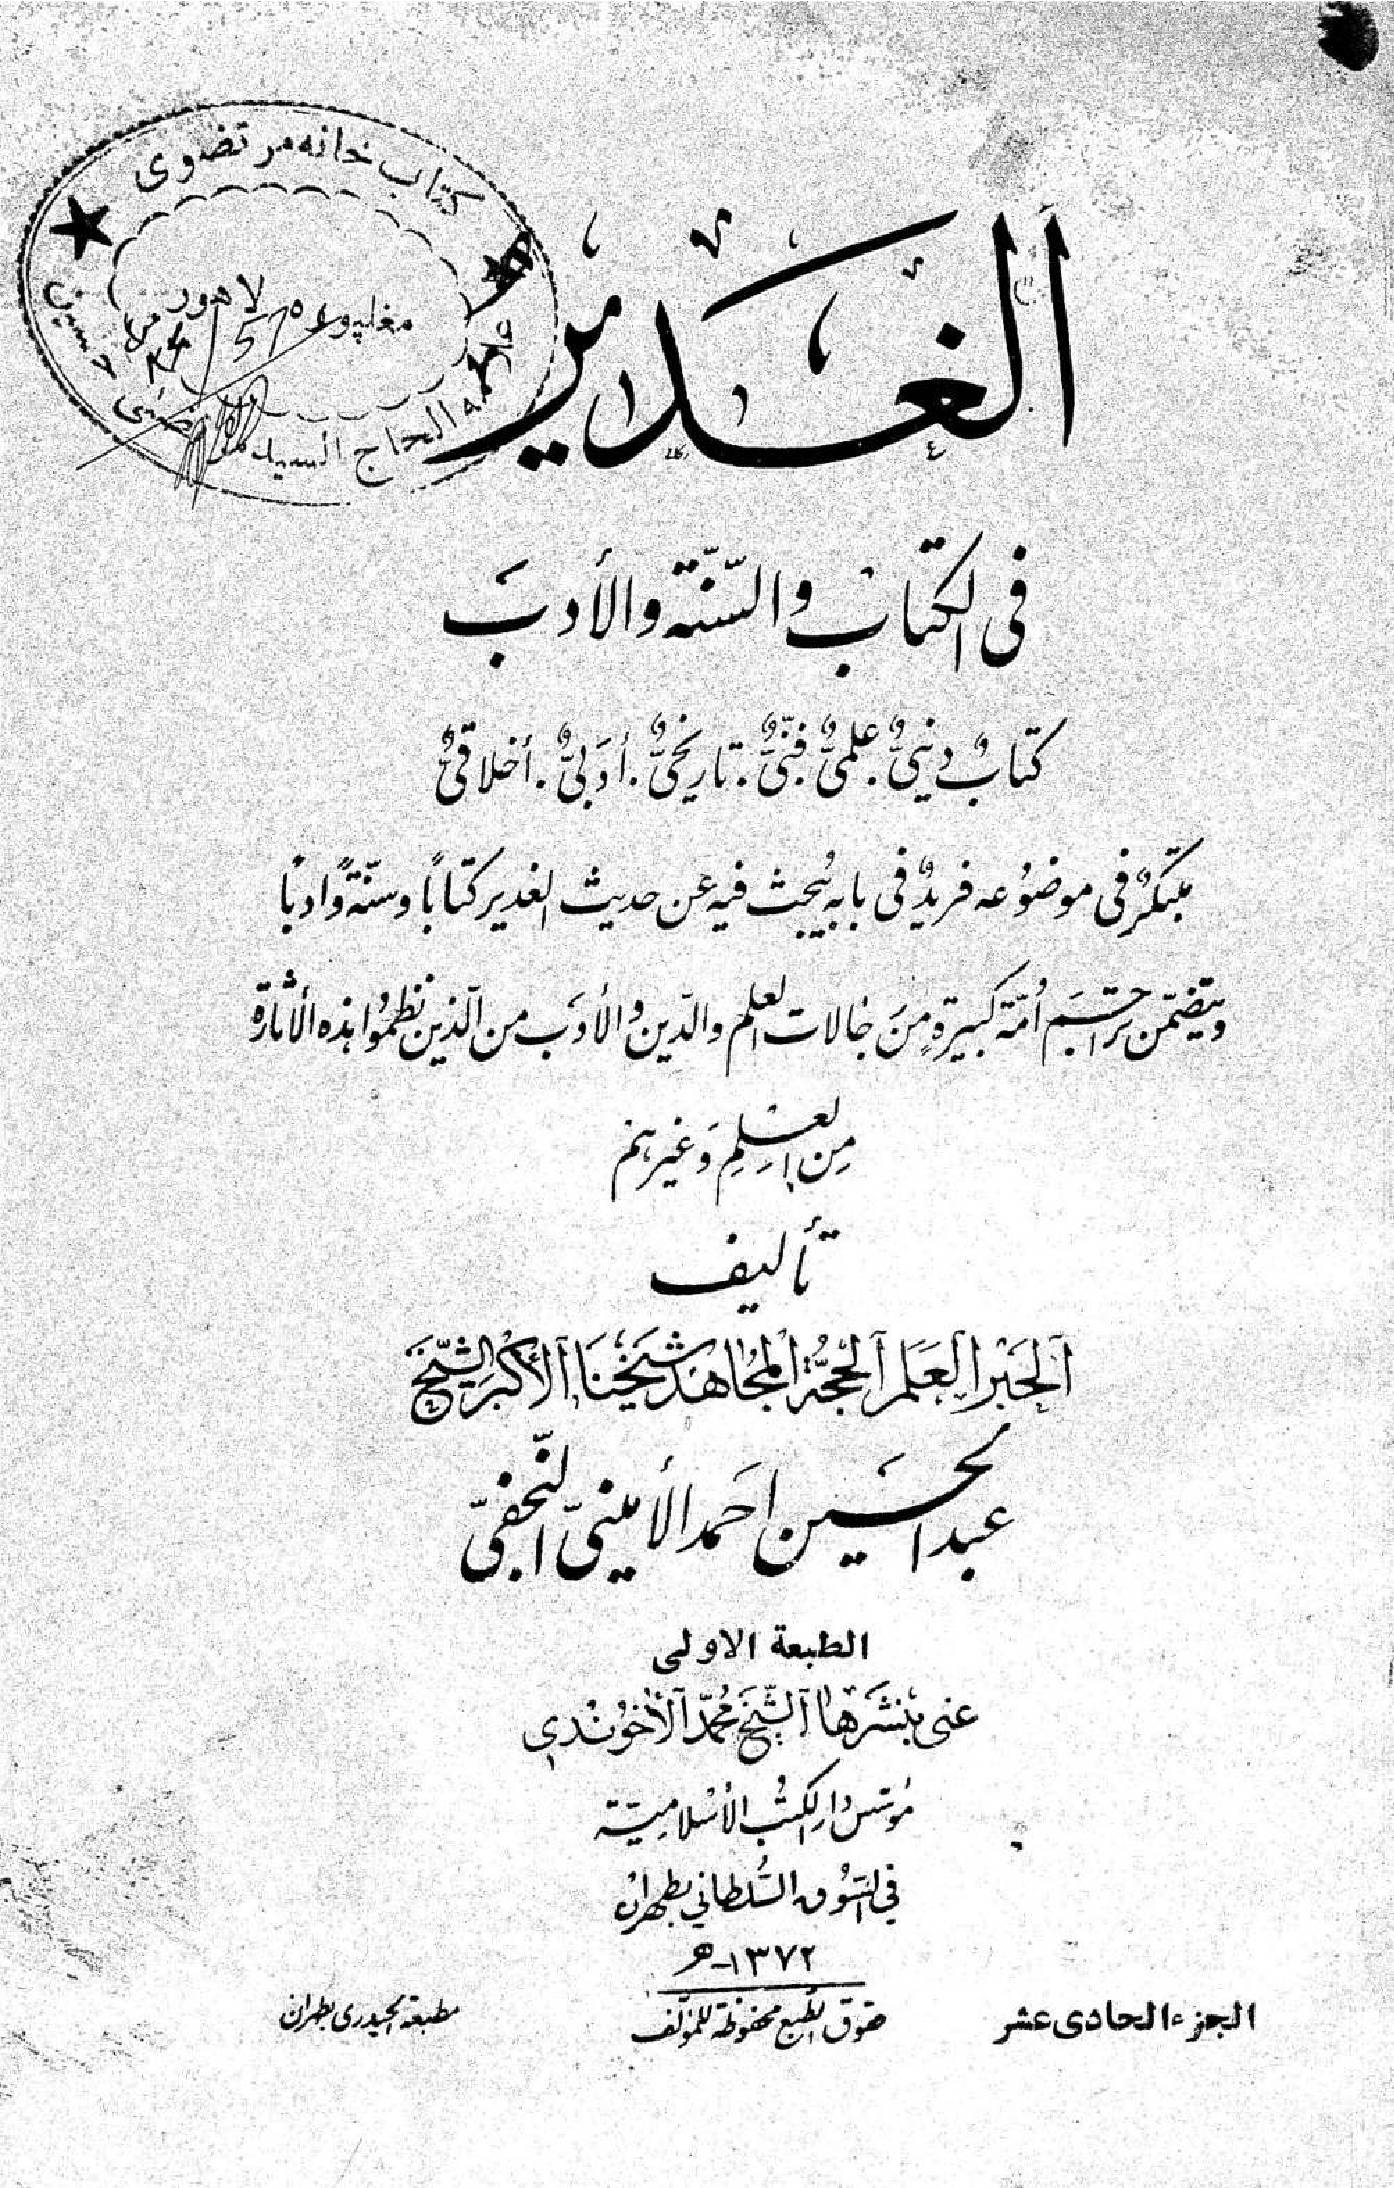 كتاب خانه مرتضوى
مغلپوره لاهور
الحاج السيد
ألغدير
فى الكتاب والسّنّة والأدب
كتابٌ دينىٌّ. علمىٌّ. فنّىٌّ. تاريخىٌّ. أدبىٌّ. أخلاقىٌّ
مبتكرٌ فى موضوعه فريدٌ فى بابه يُبحث فيه عن حديث الغدير كتاباً وسنّةً وادباً
ويتضمّن تراجم أُمّة كبيرةٍ من رجالات العلم والدّين والأدب من الّذين نظموا هذه الأثارة
من العلم وغيرهم
تأليف
ألحَبْر العَلَم ألحُجّة المُجاهد شيخنا ألأكبر الشّيخ
عبد الحسين احمد الأمينىّ النّجفىّ
الطبعة الاولى
عنى بنشرها ألشّيخ محمّد ألأخوندي
مؤسّس دار الكتب الأسلاميّة
في السّوق السّلطاني بطهران
١٣٧٢-ه
الجزء الحادى عشر
حقوق الطبع محفوظة للمؤلّف
مطبعة الحيدرى بطهران